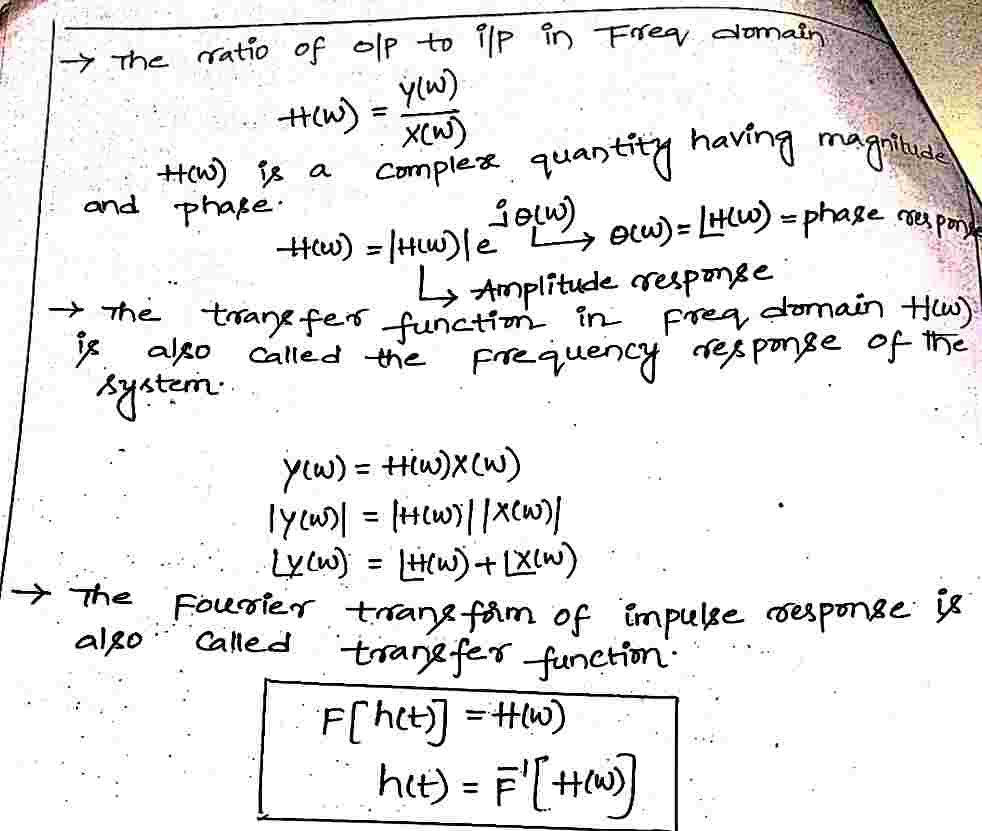 → The ratio of o/p to i/p in Freq domain
H(w) = Y(w)/X(w)
H(w) is a complex quantity having magnitude
and phase.
H(w) = |H(w)| e^{jθ(w)} ↳ θ(w) = ∠H(w) = phase response
↳ Amplitude response
→ The transfer function in freq domain H(w)
is also called the frequency response of the
system.
Y(w) = H(w)X(w)
|Y(w)| = |H(w)| |X(w)|
∠Y(w) = ∠H(w) + ∠X(w)
→ The Fourier transform of impulse response is
also called transfer function.
F[h(t)] = H(w)
h(t) = F⁻¹[H(w)]